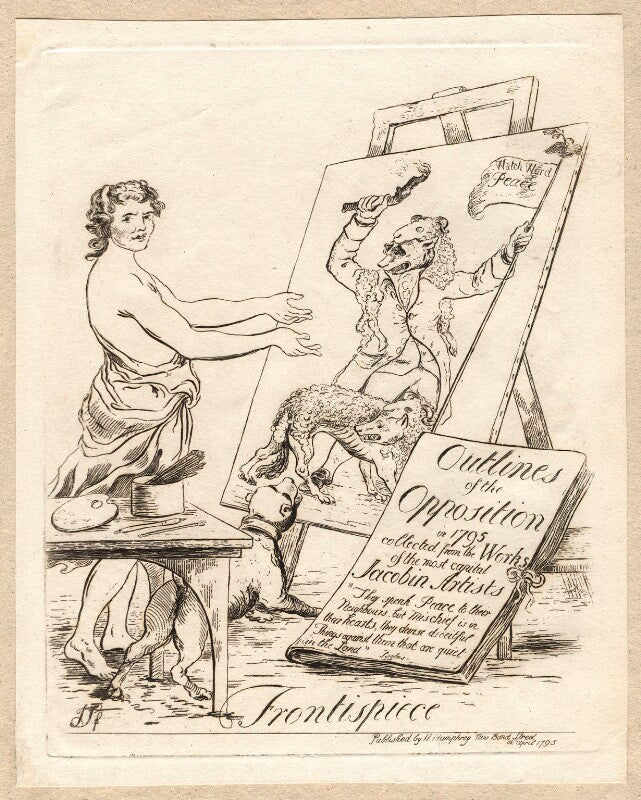 Watch Word
Peace
Outlines
of the
Opposition
in 1795
collected from the Works
of the most capital
Jacobin Artists
"They speak Peace to their
Neighbours, but Mischief is in
their hearts, they devise deceitful
Things against them that are quiet
in the Land"
Frontispiece
Published by H Humphrey New Bond Street
April 1795